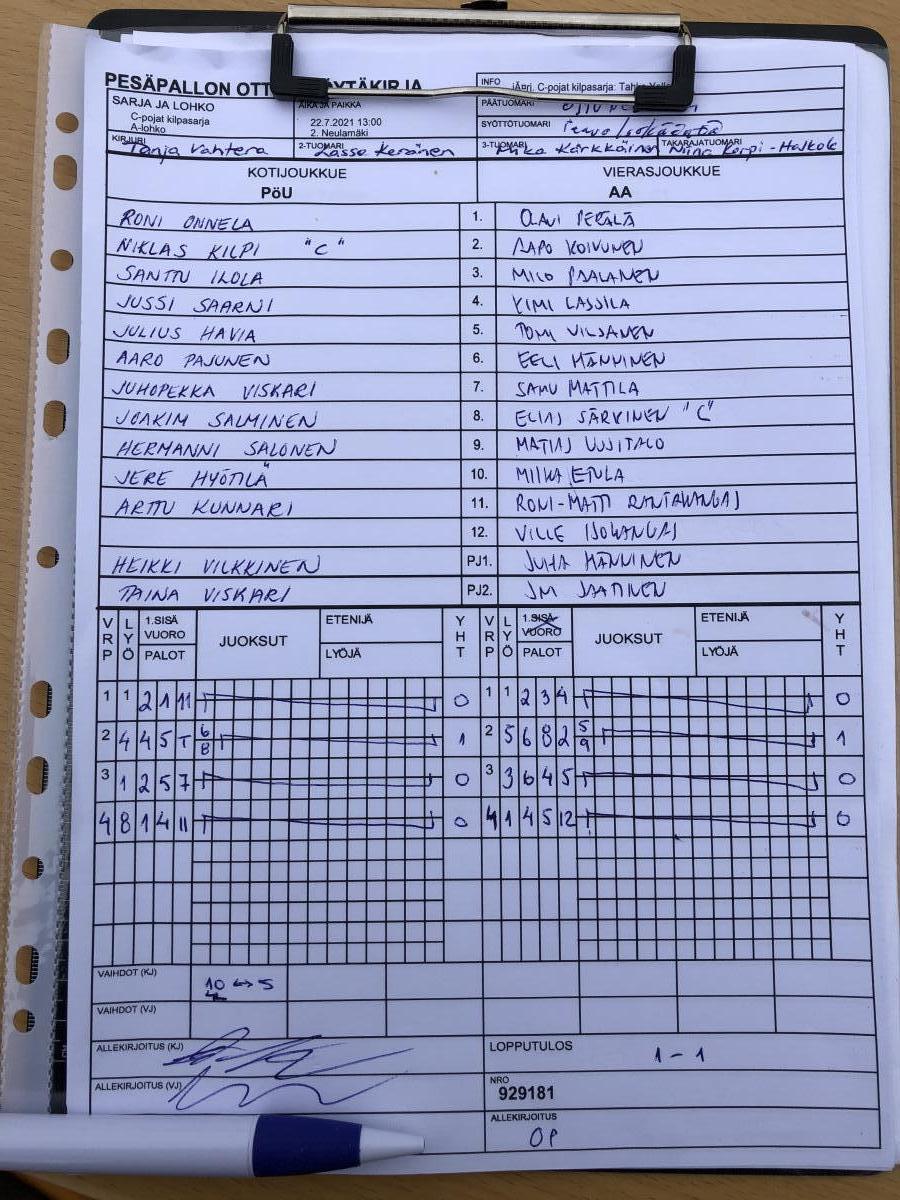 PESÄPALLON OTT ÖYTÄKIRJA
SARJA JA LOHKO
C-pojat kilpasarja
A-lohko
AIKA JA PAIKKA
22.7.2021 13:00
2. Neulamäki
INFO
C-pojat kilpasarja:
PÄÄTUOMARI
SYÖTTÖTUOMARI
KIRJURI Tanja Vahtera
2-TUOMARI Lasse Keränen
3-TUOMARI Mika Kärkkäinen
TAKARAJATUOMARI Niina Korpi-Halkola
KOTIJOUKKUE VIERASJOUKKUE
PöU AA
RONI ONNELA 1. OLAVI PERÄLÄ
NIKLAS KILPI "C" 2. AAPO KOIVUNEN
SANTTU ILOLA 3. MICO PAALANEN
JUSSI SAARNI 4. KIMI LASSILA
JULIUS HAVIA 5. TOMI VILJANEN
AARO PAJUNEN 6. EELI MÄNNINEN
JUHOPEKKA VISKARI 7. SAMU MATTILA
JOAKIM SALMINEN 8. ELIAS SÄRKINEN "C"
HERMANNI SALONEN 9. MATIAS UUSITALO
JERE HYÖTILÄ 10. MIIKA ETULA
ARTTU KUNNARI 11. RONI-MATTI RANTAKANGAS
12. VILLE ISOKANGAS
HEIKKI VILKKINEN PJ1. JUHA MÄNNINEN
TAINA VISKARI PJ2. JM JAATINEN
VRP LYÖ 1.SISÄ VUORO PALOT JUOKSUT ETENIJÄ LYÖJÄ YHT VRP LYÖ 1.SISÄ VUORO PALOT JUOKSUT ETENIJÄ LYÖJÄ YHT
1 1 2 1 11 0 1 1 2 3 4 0
2 4 4 5 T 6 8 1 2 5 6 8 2 5 9 1
3 1 2 5 7 0 3 3 6 4 5 0
4 8 1 4 11 0 4 1 4 5 12 0
VAIHDOT (KJ) 10 ↔ 5
VAIHDOT (VJ)
ALLEKIRJOITUS (KJ)
LOPPUTULOS 1 - 1
ALLEKIRJOITUS (VJ)
NRO
929181
ALLEKIRJOITUS
OP